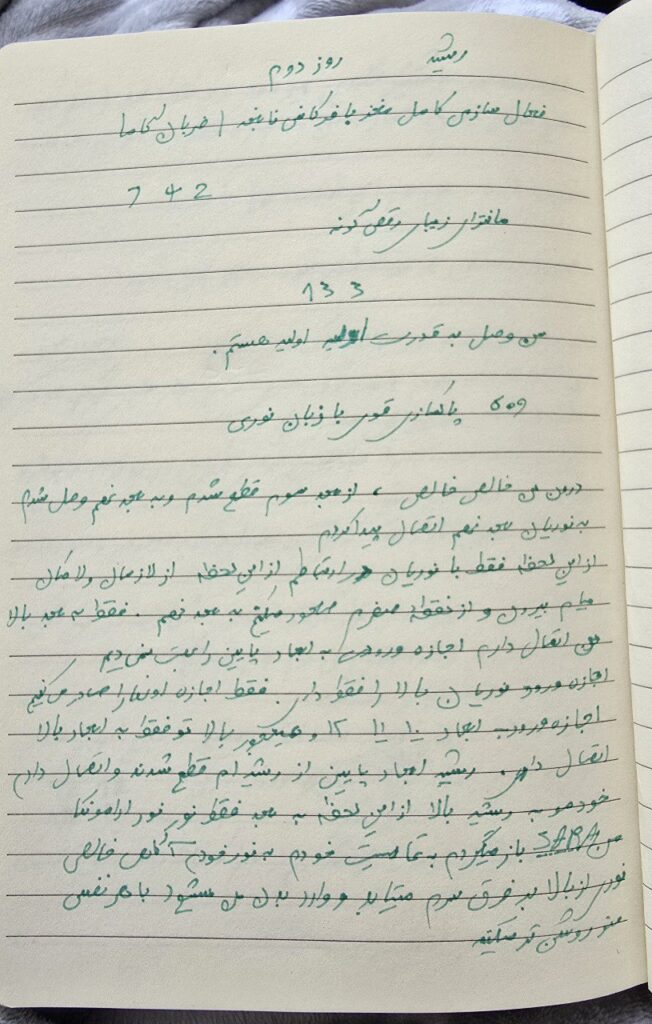 رشید روز دوم
فعال سازی کامل مغز با فرکانس نابغه / ضربان گاما
7 4 2
مانترای زیبای رقص گونه
1 3 3
من وصل به قدرت اولیه اولیه هستم.
609 پاکسازی قوی با زبان نوری
درون من خالص خالص ، از بعد سوم قطع شدم و به بعد نهم وصل شدم
به نوریان بعد نهم اتصال پیدا کردم
از این لحظه فقط با نوریان در ارتباطم از این لحظه از لازمان ولامکان
میام بیرون و از نقطه صفرم صعود میکنم به بعد نهم . فقط به بعد بالا
من اتصال دارم اجازه ورود به ابعاد پایین رابت نمی دیم
اجازه ورود نوریان بالا را فقط داری . فقط اجازه اونها را صادر می کنیم
اجازه ورود ابعاد ۱۰ ۱۱ ۱۲ و همینطور بالا تو فقط به ابعاد بالا
اتصال داری . رشید ابعاد پایین از رشید ام قطع شدند و اتصال دارم
خودمو به رشید بالا از این لحظه به بعد فقط نور نور
من SARA باز میگردم به تمامیت خودم به نور خودم آگاهی خالص
نوری از بالا به فرق سرم میتابد و وارد بدن من میشود با هر نفس
منو روشن تر میکنه